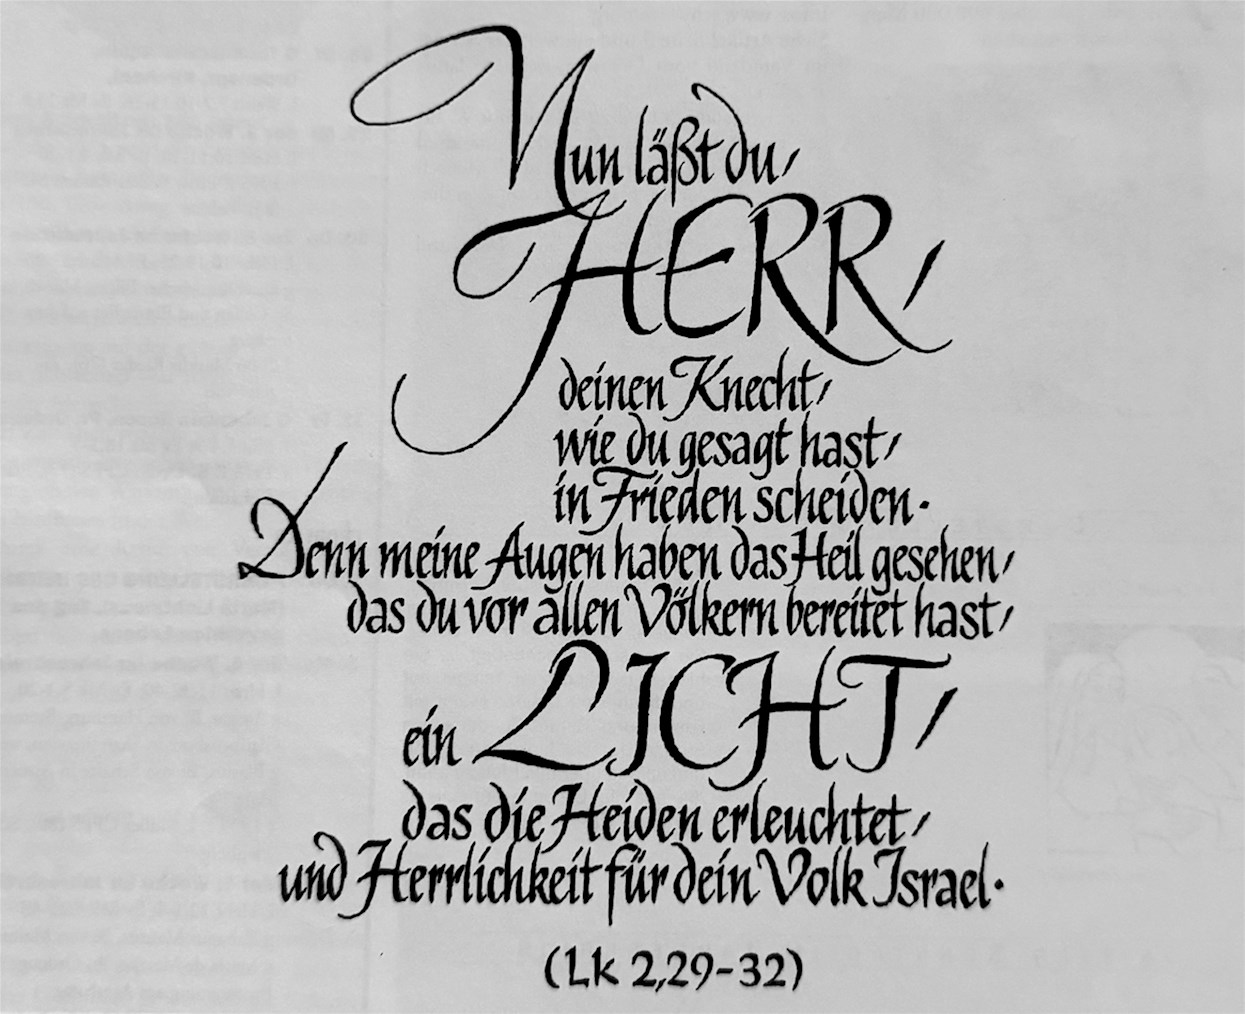 Nun läßt du,
HERR,
deinen Knecht,
wie du gesagt hast,
in Frieden scheiden.
Denn meine Augen haben das Heil gesehen,
das du vor allen Völkern bereitet hast,
ein LICHT,
das die Heiden erleuchtet,
und Herrlichkeit für dein Volk Israel.
(Lk 2,29-32)